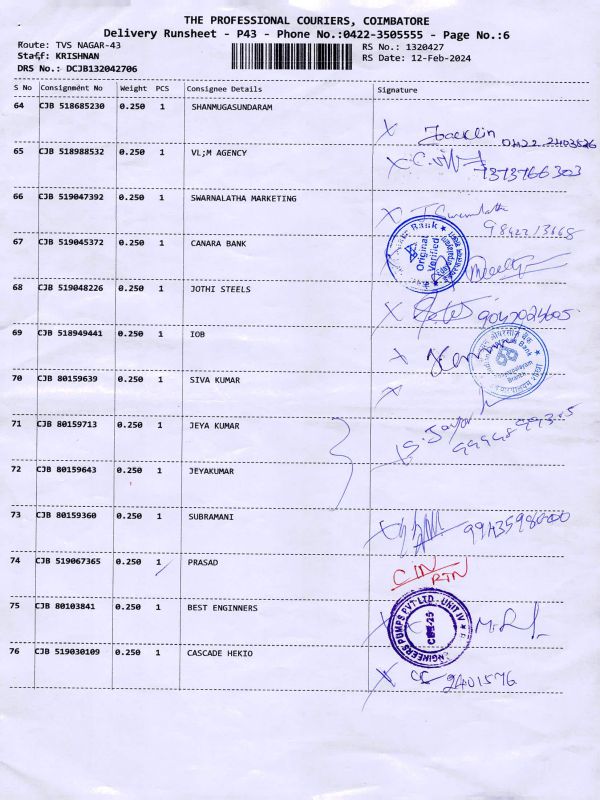 THE PROFESSIONAL COURIERS, COIMBATORE
Delivery Runsheet - P43 - Phone No.:0422-3505555 - Page No.:6
Route: TVS NAGAR-43 RS No.: 1320427
Staff: KRISHNAN RS Date: 12-Feb-2024
DRS No.: DCJB132042706
S No Consignment No Weight PCS Consignee Details Signature
64 CJB 518685230 0.250 1 SHANMUGASUNDARAM
65 CJB 518988532 0.250 1 VL;M AGENCY
7373766303
66 CJB 519047392 0.250 1 SWARNALATHA MARKETING
67 CJB 519045372 0.250 1 CANARA BANK
Original
Verified
68 CJB 519048226 0.250 1 JOTHI STEELS
69 CJB 518949441 0.250 1 IOB
70 CJB 80159639 0.250 1 SIVA KUMAR
71 CJB 80159713 0.250 1 JEYA KUMAR
72 CJB 80159643 0.250 1 JEYAKUMAR
73 CJB 80159360 0.250 1 SUBRAMANI
74 CJB 519067365 0.250 1 PRASAD
RTN
75 CJB 80103841 0.250 1 BEST ENGINNERS
ENGINEERS PUMPS PVT LTD - UNIT IV
CBE-25
76 CJB 519030109 0.250 1 CASCADE HEKIO
2401576